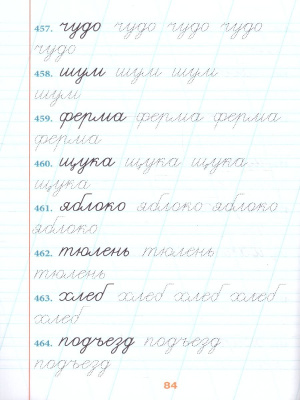 457. чудо чудо чудо чудо
чудо
458. шум шум шум
шум
459. ферма ферма ферма
ферма
460. щука щука щука
щука
461. яблоко яблоко яблоко
яблоко
462. тюлень тюлень
тюлень
463. хлеб хлеб хлеб хлеб
хлеб
464. подъезд подъезд
подъезд
84